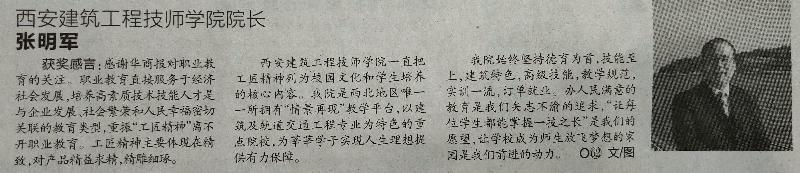 西安建筑工程技师学院院长
张明军
获奖感言：感谢华商报对职业教
育的关注。职业教育直接服务于经济
社会发展，培养高素质技术技能人才是
与企业发展、社会繁荣和人民幸福密切
关联的教育类型，重振“工匠精神”离不
开职业教育。工匠精神主要体现在精
致，对产品精益求精，精雕细琢。
西安建筑工程技师学院一直把
工匠精神列为校园文化和学生培养
的核心内容。我院是西北地区唯一
一所拥有“情景再现”教学平台，以建
筑及轨道交通工程专业为特色的重
点院校，为莘莘学子实现人生理想提
供有力保障。
我院始终坚持德育为首，技能至
上，建筑特色，高级技能，教学规范，
实训一流，订单就业。办人民满意的
教育是我们矢志不渝的追求，“让每
位学生都能掌握一技之长”是我们的
愿望，让学校成为师生放飞梦想的家
园是我们前进的动力。 文/图